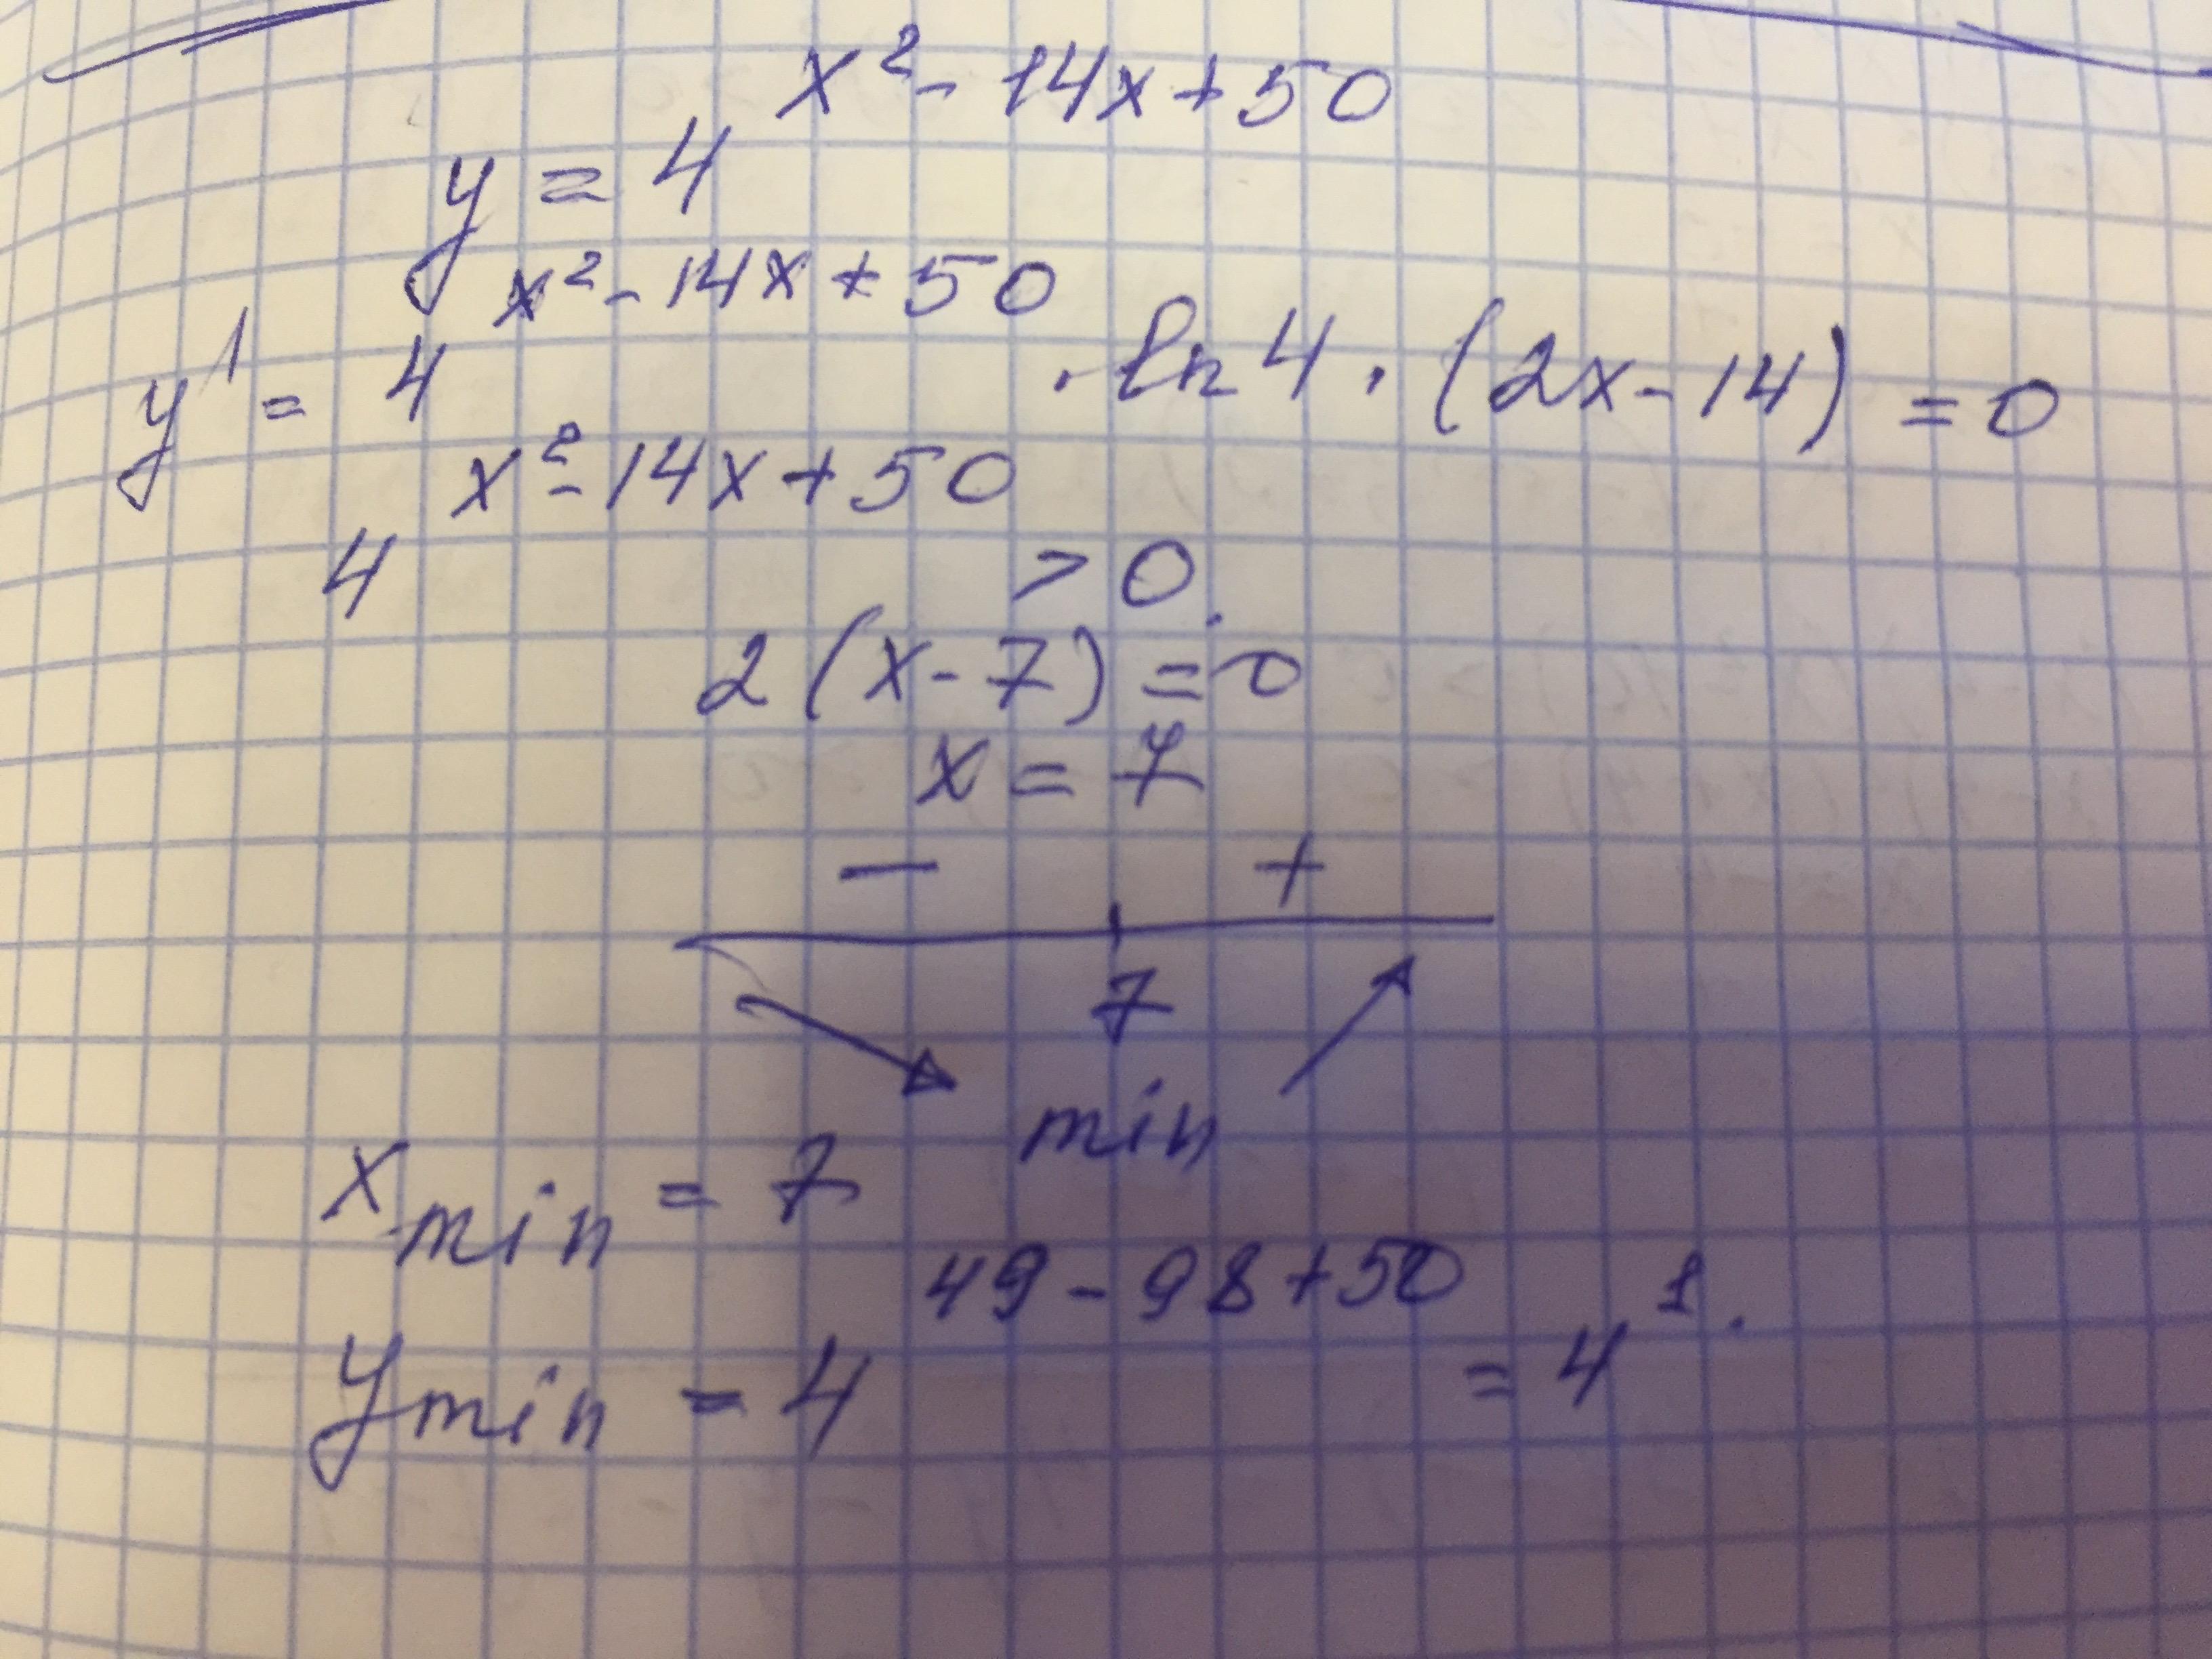 y = 4^{x² - 14x + 50}
y' = 4^{x² - 14x + 50} · ln 4 · (2x - 14) = 0
4^{x² - 14x + 50} > 0.
2(x - 7) = 0
x = 7
− +
7
min
x_{min} = 7
y_{min} = 4^{49 - 98 + 50} = 4^{1}.